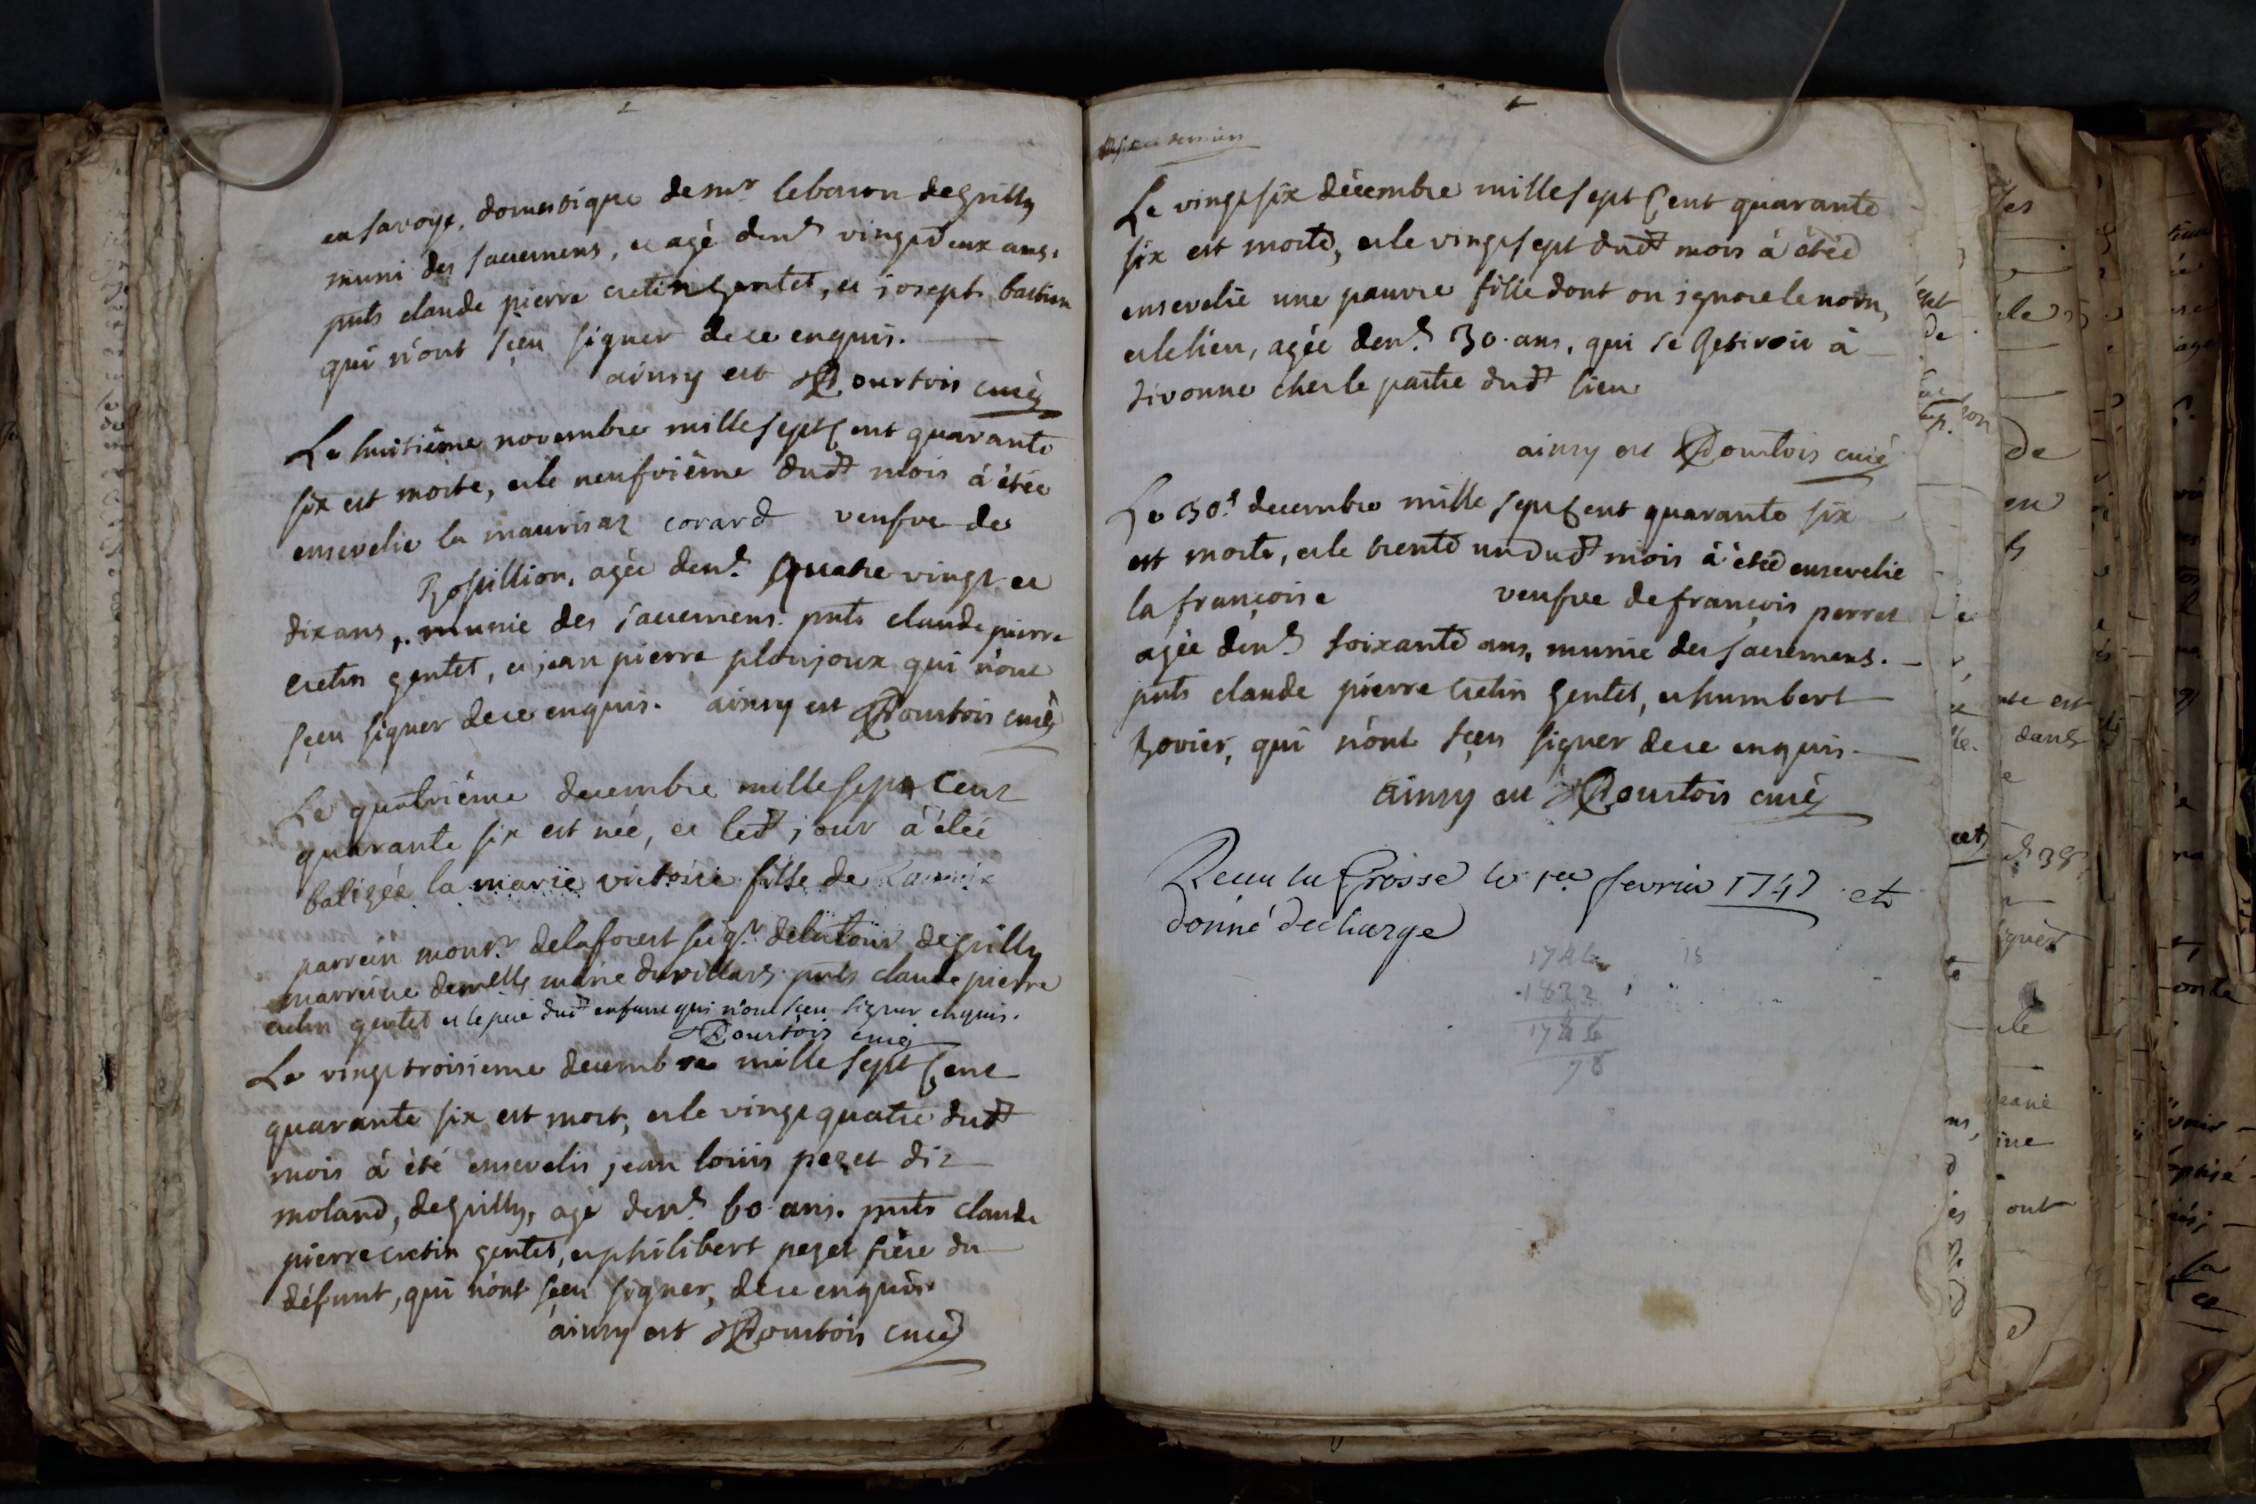 en savoye, domestique de mr le baron de grilly
muni des sacremens, et agé denv. vingt deux ans.
pnts claude pierre cretin gentet, et joseph bastian
qui n'ont sçeu signer de ce enquis.
ainsy est Courtois curé
Le huitième novembre mille sept cent quarante
six est morte, et le neufvième dudt mois à étée
ensevelie la maurisaz corard veufve de
Rosillion, agée denv. quatre vingt et
dix ans, munie des sacremens. pnts claude pierre
cretin gentet, et jean pierre ploujoux qui n'ont
sçeu signer de ce enquis. ainsy est Courtois curé
Le quatrième decembre mille sept cent
quarante six est née, et ledt jour à étée
batizée la marie victoire fille de
parrein monsr. delaforest seigr. de la tour de grilly
marreine demlle marie duvillars. pnts claude pierre
cretin gentet et le peré dudt enfant qui n'ont sçeu signer enquis.
Courtois curé
Le vingt troisieme decembre mille sept cent
quarante six est mort, et le vingt quatre dudt
mois à été ensevelis jean louis pezet dit
moland, de grilly, agé denv. 60 ans. pnts claude
pierre cretin gentet, et philibert pezet frère du
défunt, qui n'ont sçeu signer, de ce enquis.
ainsy est Courtois curé
dernier
Le vingt six décembre mille sept cent quarante
six est morte, et le vingt sept dudt mois à étée
ensevelie une pauvre fille dont on ignore le nom,
et le lieu, agée denv. 30. ans, qui se retiroit à
divonne chez le paitre dudt lieu
ainsy est Courtois curé
Le 30e decembre mille sept cent quarante six
est morte, et le trente un dudt mois à étée ensevelie
la françoise veufve de françois perret
agée denv. soixante ans, munie des sacremens.
pnts claude pierre cretin gentet, et humbert
bovier, qui n'ont sçeu signer de ce enquis.
ainsy est Courtois curé
Receu la Grosse le 1er fevrier 1747 et
donné decharge
1746 18
1822
1746
78